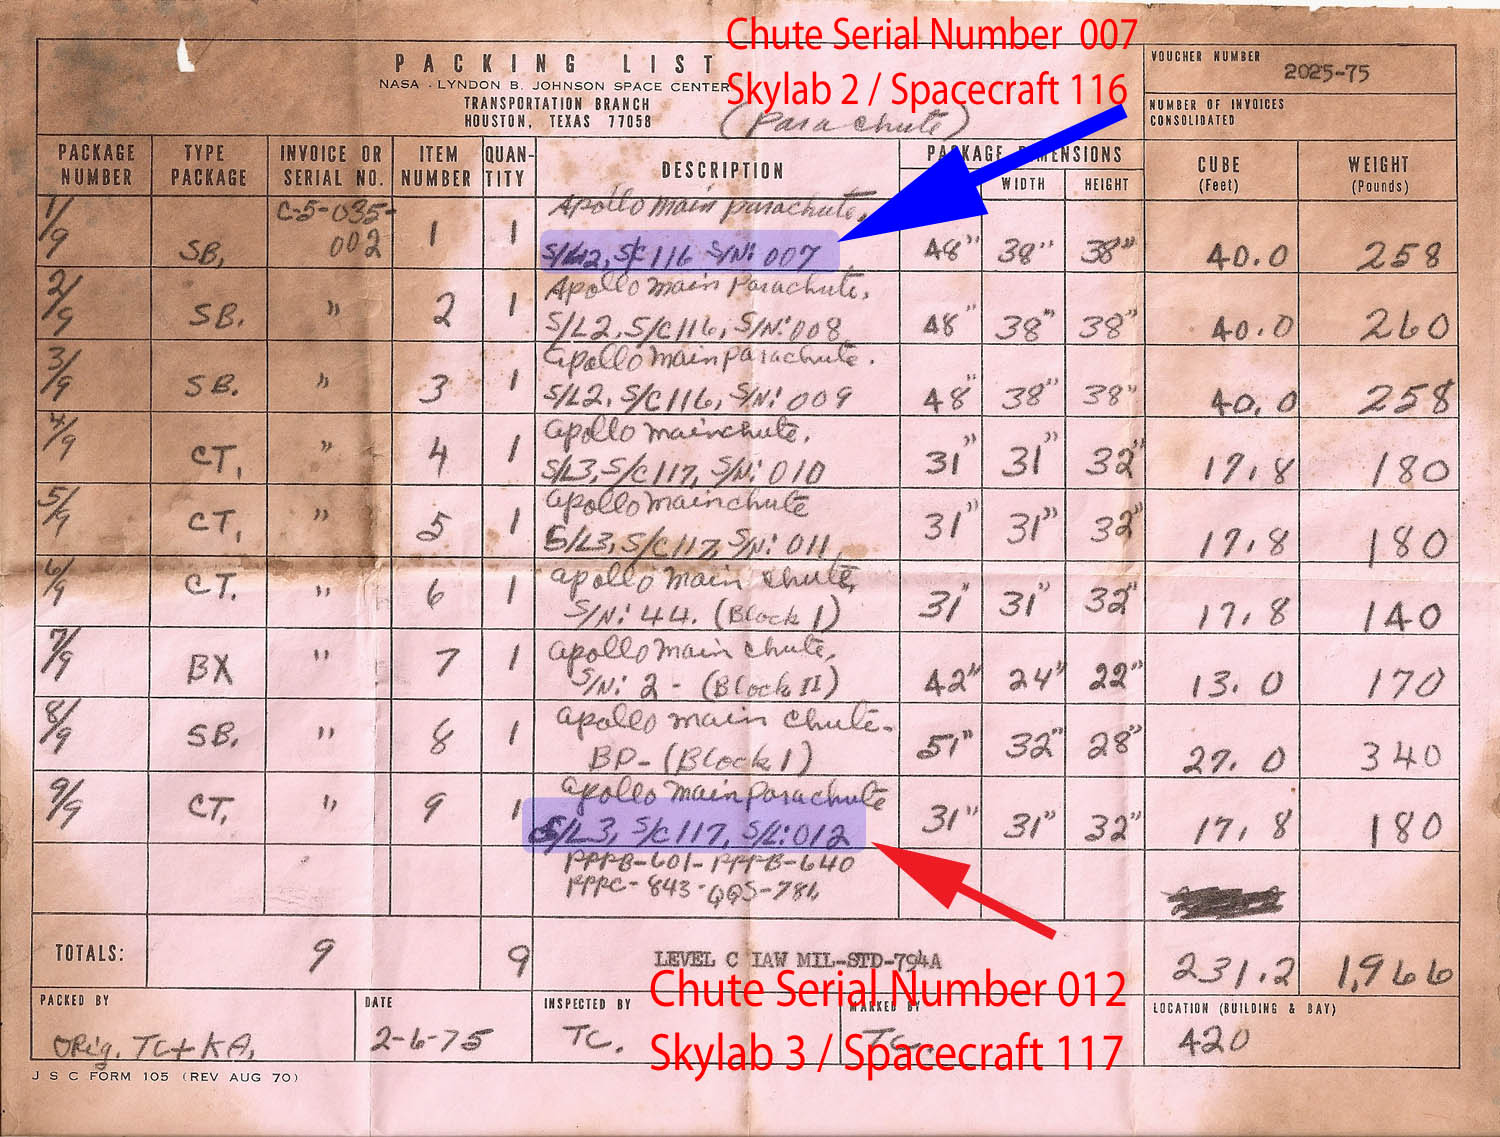 Chute Serial Number 007
Skylab 2 / Spacecraft 116
PACKING LIST
NASA - LYNDON B. JOHNSON SPACE CENTER
TRANSPORTATION BRANCH
HOUSTON, TEXAS 77058
(Parachute)
VOUCHER NUMBER
2025-75
NUMBER OF INVOICES
CONSOLIDATED
PACKAGE NUMBER TYPE PACKAGE INVOICE OR SERIAL NO. ITEM NUMBER QUAN-TITY DESCRIPTION PACKAGE DIMENSIONS WIDTH HEIGHT CUBE (Feet) WEIGHT (Pounds)
1/9 SB, C-5-035-002 1 1 Apollo main parachute,
S/L2, S/C 116 S/N: 007 48" 38" 38" 40.0 258
2/9 SB. " 2 1 Apollo main Parachute,
S/L2, S/C 116, S/N: 008 48" 38" 38" 40.0 260
3/9 SB. " 3 1 Apollo main parachute.
S/L2, S/C 116, S/N: 009 48" 38" 38" 40.0 258
4/9 CT, " 4 1 apollo mainchute,
S/L3, S/C 117, S/N: 010 31" 31" 32" 17.8 180
5/9 CT, " 5 1 apollo mainchute
S/L3, S/C 117, S/N: 011 31" 31" 32" 17.8 180
6/9 CT. " 6 1 apollo main chute,
S/N: 44. (Block I) 31" 31" 32" 17.8 140
7/9 BX " 7 1 apollo main chute,
S/N: 2 - (Block II) 42" 24" 22" 13.0 170
8/9 SB. " 8 1 apollo main chute-
BP- (Block I) 51" 32" 28" 27.0 340
9/9 CT, " 9 1 apollo main parachute
S/L3, S/C 117, S/L: 012 31" 31" 32" 17.8 180
PPPB-601-PPPB-640
PPPC-843-QQS-786
TOTALS: 9 9 LEVEL C IAW MIL-STD-794A 231.2 1,966
Chute Serial Number 012
Skylab 3 / Spacecraft 117
PACKED BY DATE INSPECTED BY MARKED BY LOCATION (BUILDING & BAY)
Orig. TC+KA, 2-6-75 TC. TC. 420
JSC FORM 105 (REV AUG 70)